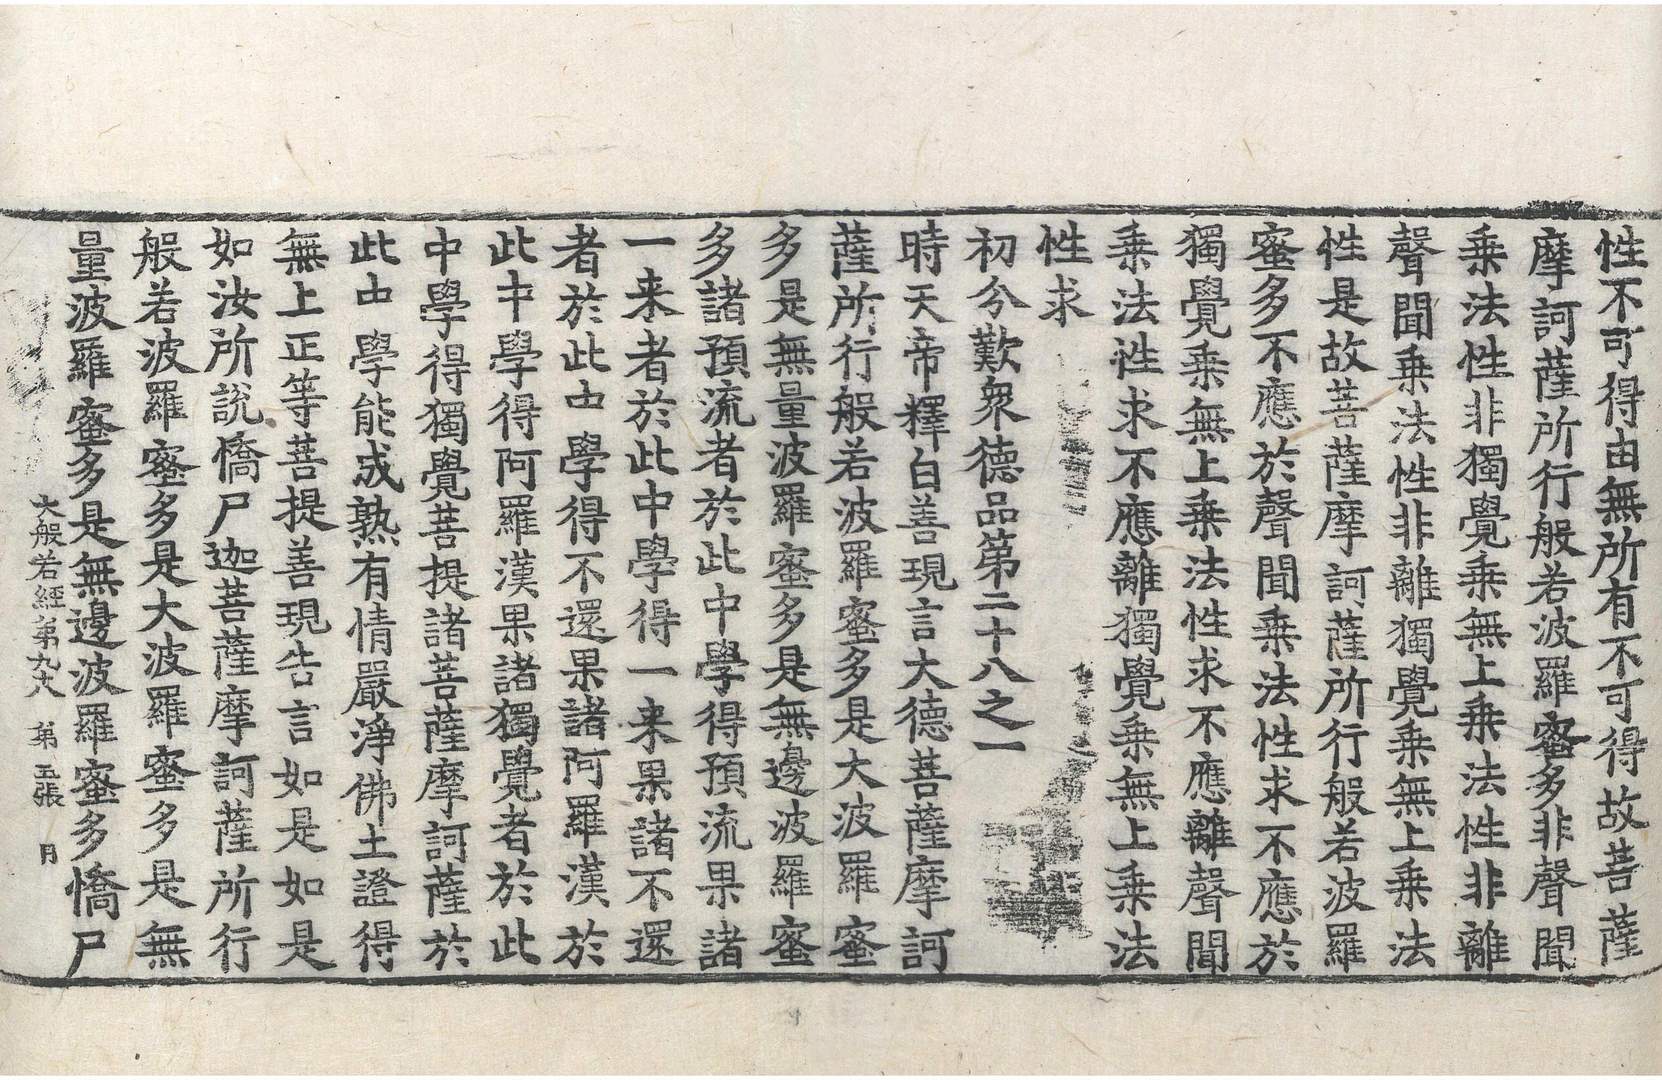 性不可得由無所有不可得故菩薩
摩訶薩所行般若波羅蜜多非聲聞
乘法性非獨覺乘無上乘法性非離
聲聞乘法性非離獨覺乘無上乘法
性是故菩薩摩訶薩所行般若波羅
蜜多不應於聲聞乘法性求不應於
獨覺乘無上乘法性求不應離聲聞
乘法性求不應離獨覺乘無上乘法
性求
初分歎衆德品第二十八之一
時天帝釋白善現言大德菩薩摩訶
薩所行般若波羅蜜多是大波羅蜜
多是無量波羅蜜多是無邊波羅蜜
多諸預流者於此中學得預流果諸
一来者於此中學得一来果諸不還
者於此中學得不還果諸阿羅漢於
此中學得阿羅漢果諸獨覺者於此
中學得獨覺菩提諸菩薩摩訶薩於
此中學能成熟有情嚴淨佛土證得
無上正等菩提善現告言如是如是
如汝所說憍尸迦菩薩摩訶薩所行
般若波羅蜜多是大波羅蜜多是無
量波羅蜜多是無邊波羅蜜多憍尸
大般若經第九十八 第五張 月